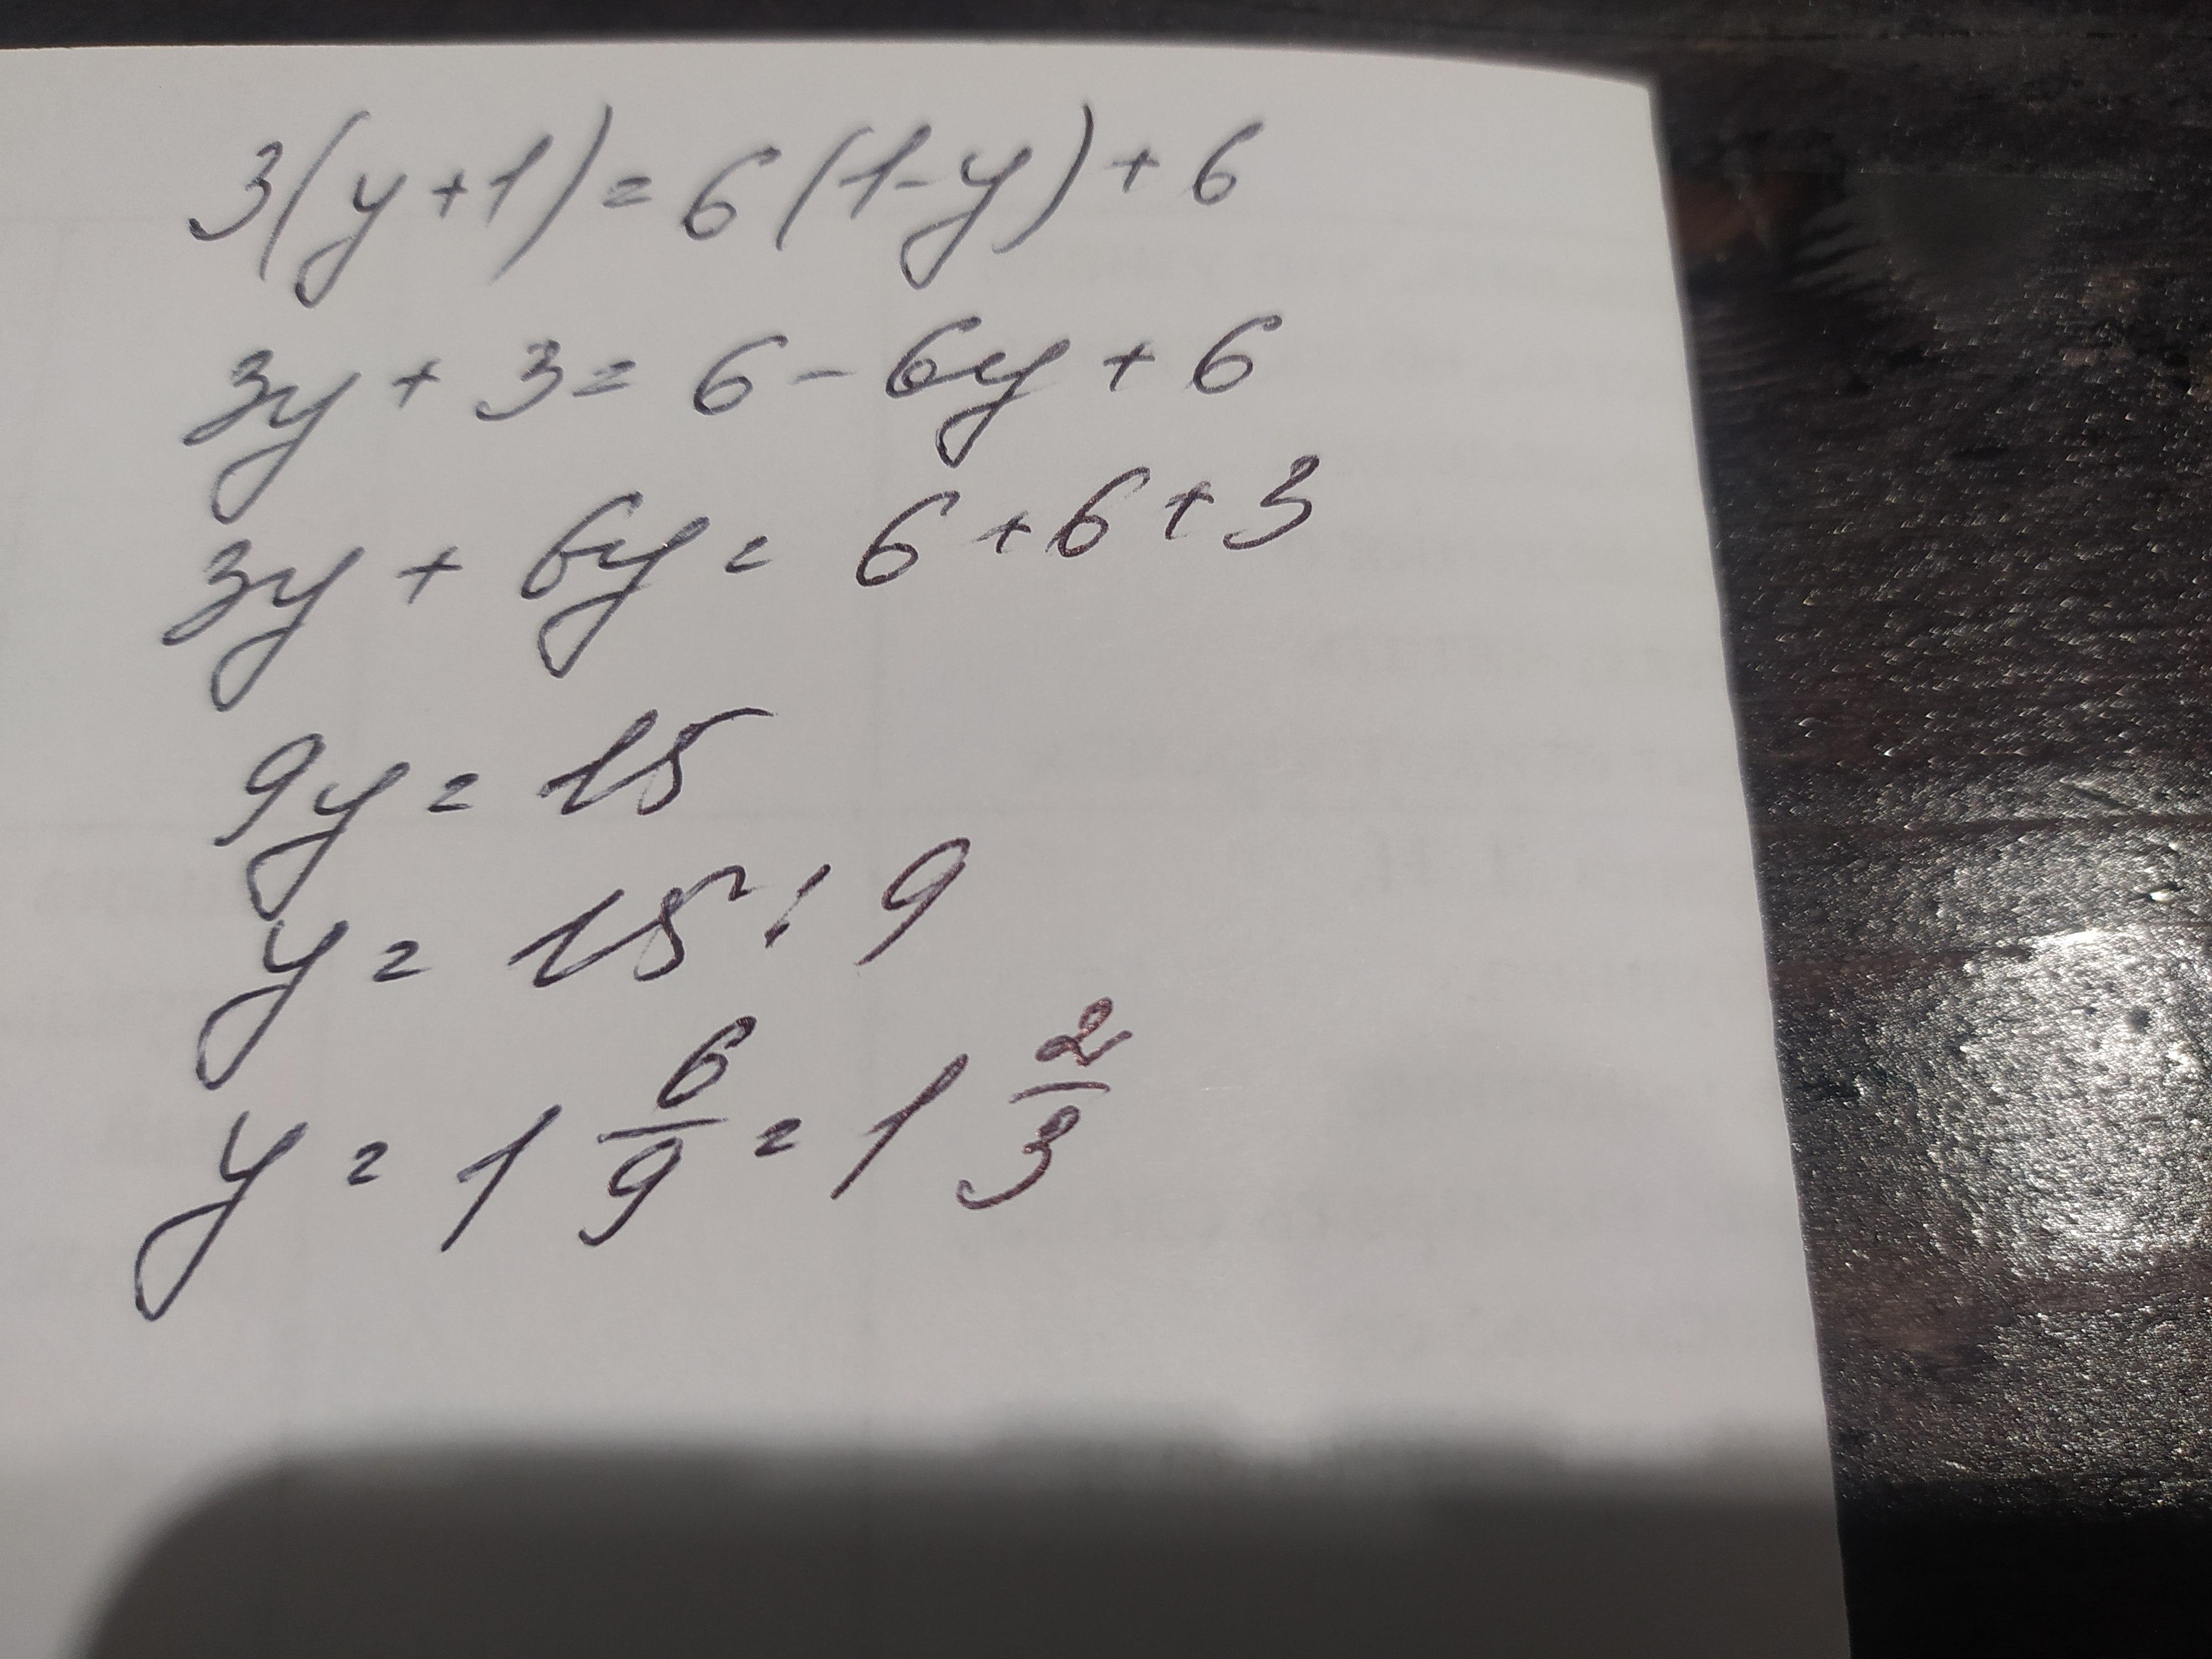 3(y+1)=6(1-y)+6
3y+3=6-6y+6
3y+6y=6+6+3
9y=15
y=15:9
y=1 6/9=1 2/3